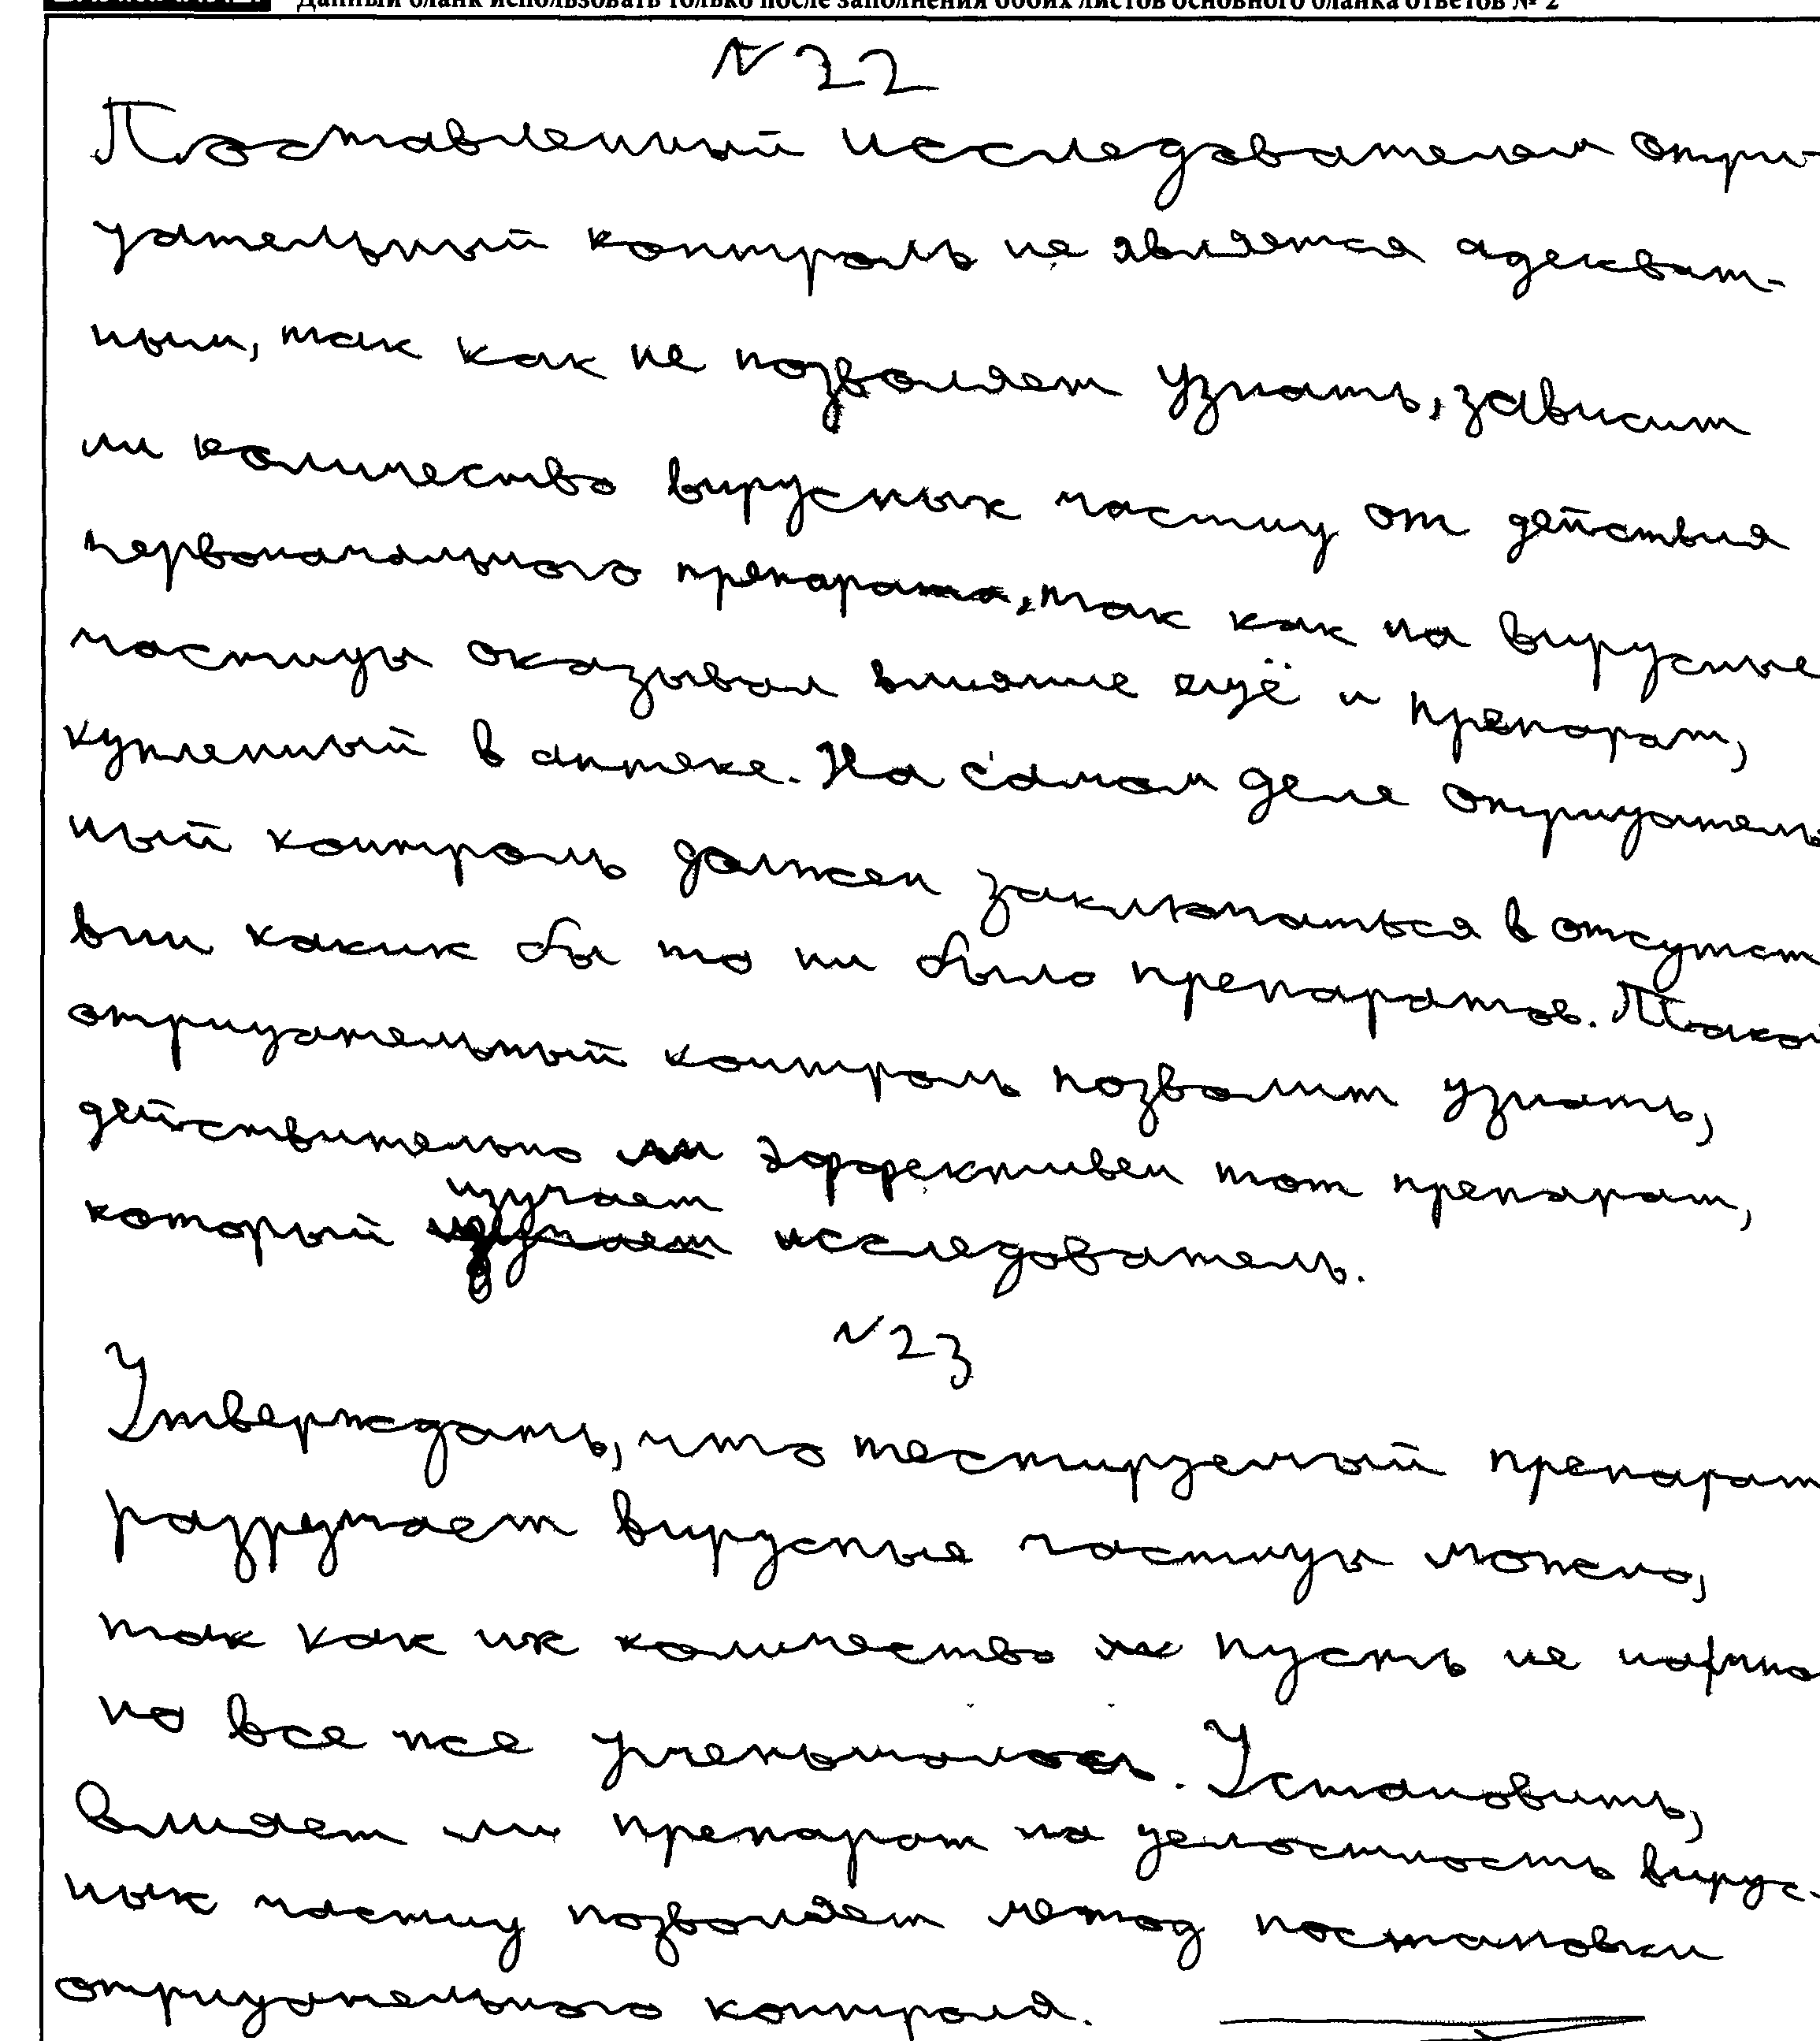 Данный бланк использовать только после заполнения обоих листов основного бланка ответов № 2
N 22
Поставленный исследователем отри-
цательный контроль не является адекват-
ным, так как не позволяет узнать, зависит
ли количество вирусных частиц от действия
первоначального препарата, так как на вирусные
частицы оказывал влияние ещё и препарат,
купленный в аптеке. На самом деле отрицатель
ный контроль должен заключаться в отсутст
вии каких бы то ни было препаратов. Такой
отрицательный контроль позволит узнать,
действительно ли эффективен тот препарат,
изучает
который исследователь.
N 23
Утверждать, что тестируемый препарат
разрушает вирусные частицы можно,
так как их количество пусть не
но все же уменьшалось. Установить,
влияет ли препарат на целостность вирус-
ных частиц позволяет метод постановки
отрицательного контроля.